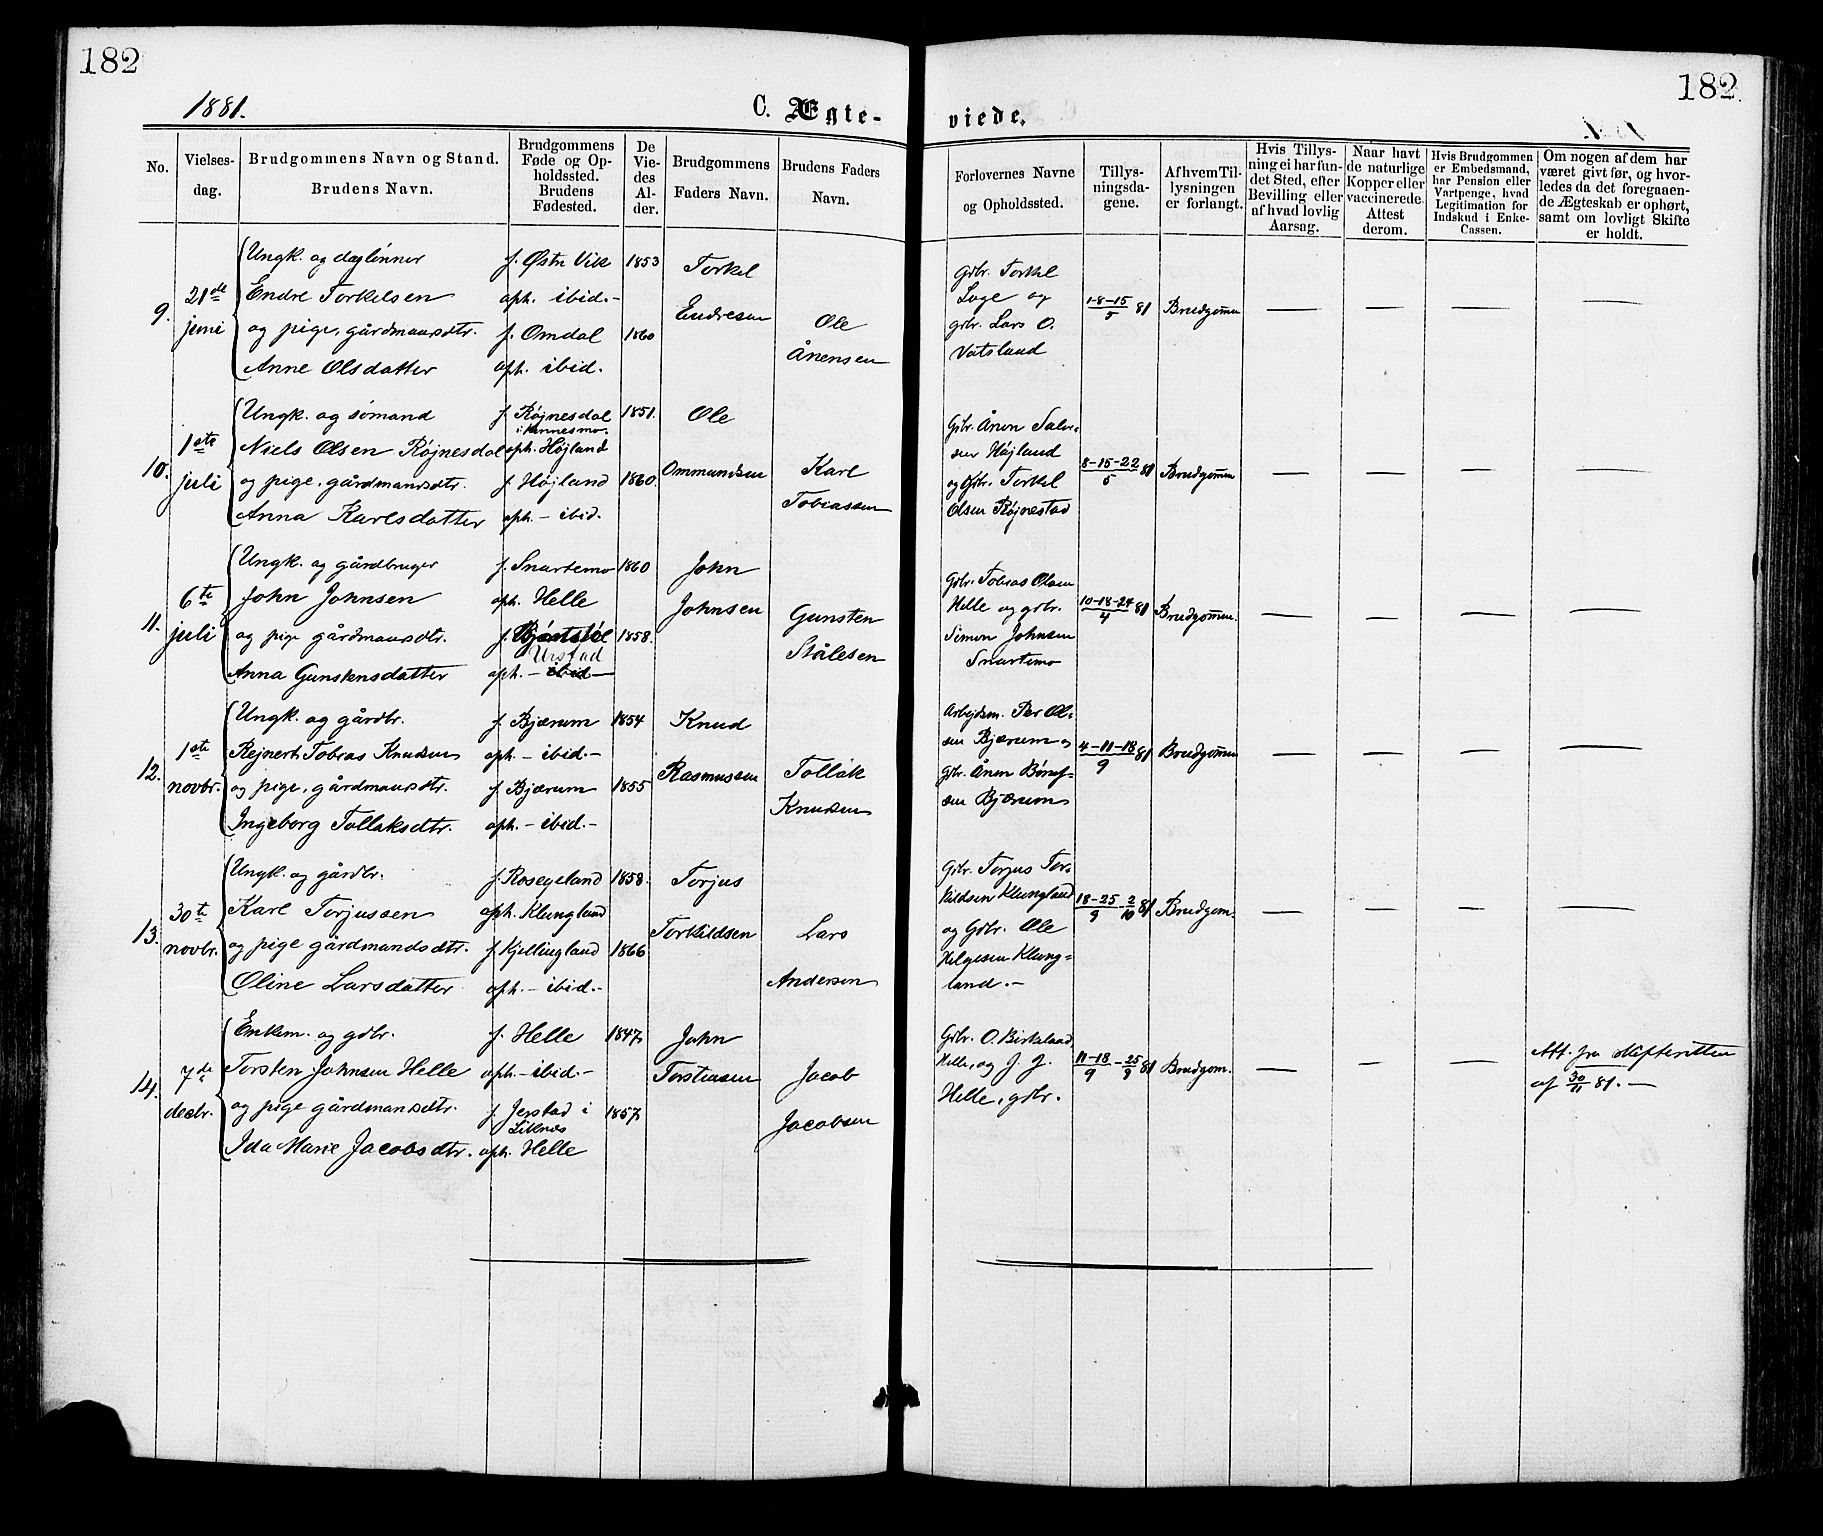 182
182
1881.
C. Ægte-
viede.
No.
Vielses-
dag.
Brudgommens Navn og Stand.
Brudens Navn.
Brudgommens
Føde og Op-
holdssted.
Brudens
Fødested.
De
Vie-
des
Al-
der.
Brudgommens
Faders Navn.
Brudens Faders
Navn.
Forlovernes Navne
og Opholdssted.
Tillys-
ningsda-
gene.
Af hvem Til-
lysningen
er forlangt.
Hvis Tillys-
ning ei har fun-
det Sted, efter
Bevilling eller
af hvad lovlig
Aarsag.
Naar havt
de naturlige
Kopper eller
vaccinerede.
Attest
derom.
Hvis Brudgommen
er Embedsmand,
har Pension eller
Vartpenge, hvad
Legitimation for
Indskud i Enke-
Cassen.
Om nogen af dem har
været givt før, og hvor-
ledes da det foregaaen-
de Ægteskab er ophørt,
samt om lovligt Skifte
er holdt.
9.
21de
juni
Ungk. og daglønner
Endre Torkelsen
og pige, gårdmansdtr.
Anne Olsdatter
f. Østr Vik
oph. ibid.-
f. Omdal
oph. ibid.
1853
1860
Torkel
Endresen
Ole
Ånensen
Gdbr. Torkel
Loge og
gdbr. Lars O.
Vatsland
1-8-15/5 81
Brudgomen
10.
1ste
juli
Ungk. og sømand
Niels Olsen Røjnesdal
og pige, gårdmansdtr.
Anna Karlsdatter
f. Røjnesdal
i Finnesmo.
oph. Højland
f. Højland
oph. - ibid.
1851.
1860.
Ole
Ommundsen
Karl
Tobiassen
Gbr. Ånen Salve-
sen Højland
og Gdbr. Torkel
Olsen Røjnestad
8-15-22/5 81
Brudgomen
11.
6te
juli
Ungk. og gårdbruger
John Johnsen
og pige gårdmansdtr.
Anna Gunstensdatter
f. Snartemo
oph. Helle
f.
Urstad
oph. - ibid -
1860
1858.
John
Johnsen
Gunsten
Stålesen
Gdbr. Tobias Olsen
Helle og gdbr.
Simon Johnsen
Snartemo
10-18-24/4 81
Brudgomen.
12.
1ste
novbr.
Ungk. og gårdbr.
Rejnert Tobias Knudsen
og pige, gårdmansdtr.
Ingeborg Tollaksdtr.
f. Bjærum
oph. - ibid.-
f. Bjærum
oph. - ibid.-
1854
1855
Knud
Rasmussen
Tollak
Knudsen
Arbejdsm. Per Ol-
sen Bjærum og
Gdbr. Ånen
sen Bjærum
4-11-18/9 81
Brudgomen
13.
30te
novbr.
Ungk. og gårdbr.
Karl Torjussen
og pige gårdmandsdtr.
Oline Larsdatter
f. Rosegeland
oph. Klungland
f. Kjellingland
oph. - ibid.-
1858.
1866
Torjus
Torkildsen
Lars
Andersen
Gdbr. Torjus Tor-
kildsen Klungland
og Gdbr. Ole
Helgesen Klung-
land.-
18-25/9 - 2/10 81
Brudgom.
14.
7de
decbr.
Enkem. og gdbr.
Torsten Johnsen Helle
og pige gårdmansdtr.
Ida Marie Jacobsdtr.
f. Helle
oph. - ibid.-
f. Jerstad i
Liknes
oph. Helle
1847
1857
John
Torstensen
Jacob
Jacobsen
Gdbr. O. Birkeland
Helle, og J. J.
Helle, gdbr.
11-18/9 - 25/9 81
Brudgom.
Att. fra skifteretten
af 30/11 81. -